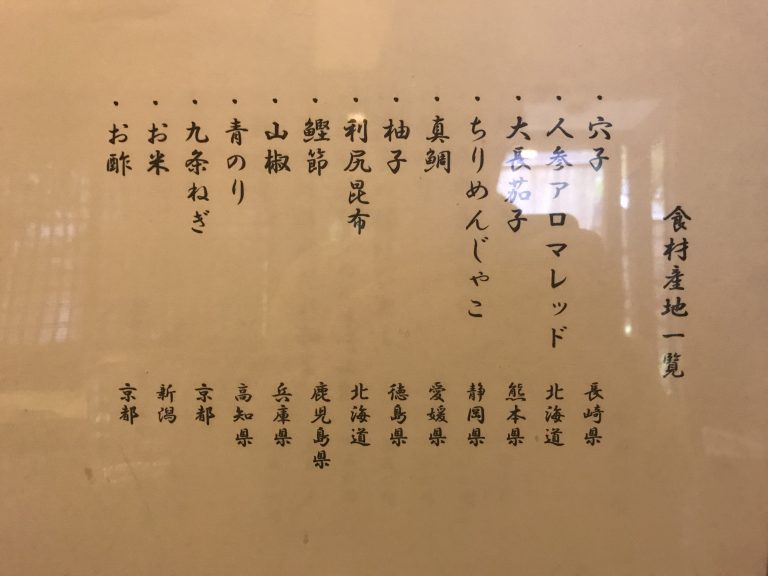 食材産地一覧
・穴子 長崎県
・人参アロマレッド 北海道
・大長茄子 熊本県
・ちりめんじゃこ 静岡県
・真鯛 愛媛県
・柚子 徳島県
・利尻昆布 北海道
・鰹節 鹿児島県
・山椒 兵庫県
・青のり 高知県
・九条ねぎ 京都
・お米 新潟
・お酢 京都